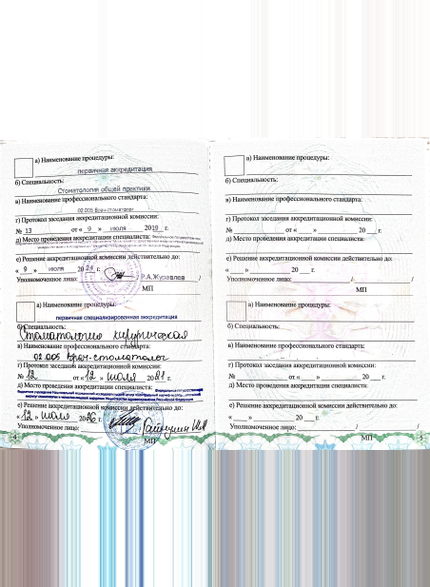 а) Наименование процедуры:
первичная аккредитация
б) Специальность:
Стоматология общей практики
в) Наименование профессионального стандарта:
02.005 Врач-стоматолог
г) Протокол заседания аккредитационной комиссии:
№ 13 от « 9 » июля 2019 г.
д) Место проведения аккредитации специалиста:
е) Решение аккредитационной комиссии действительно до:
« 9 » июля 2024 г.
Уполномоченное лицо: Р.А.Журавлев /
МП
а) Наименование процедуры:
первичная специализированная аккредитация
б) Специальность:
Стоматология хирургическая
в) Наименование профессионального стандарта:
02.005 Врач-стоматолог
г) Протокол заседания аккредитационной комиссии:
№ 12 от « 12 » июля 2021 г.
д) Место проведения аккредитации специалиста:
е) Решение аккредитационной комиссии действительно до:
« 12 » июля 2026 г.
Уполномоченное лицо:
МП
4
а) Наименование процедуры:
б) Специальность:
в) Наименование профессионального стандарта:
г) Протокол заседания аккредитационной комиссии:
№ от « » 20 г.
д) Место проведения аккредитации специалиста:
е) Решение аккредитационной комиссии действительно до:
« » 20 г.
Уполномоченное лицо: / /
МП
а) Наименование процедуры:
б) Специальность:
в) Наименование профессионального стандарта:
г) Протокол заседания аккредитационной комиссии:
№ от « » 20 г.
д) Место проведения аккредитации специалиста:
е) Решение аккредитационной комиссии действительно до:
« » 20 г.
Уполномоченное лицо: / /
МП
5